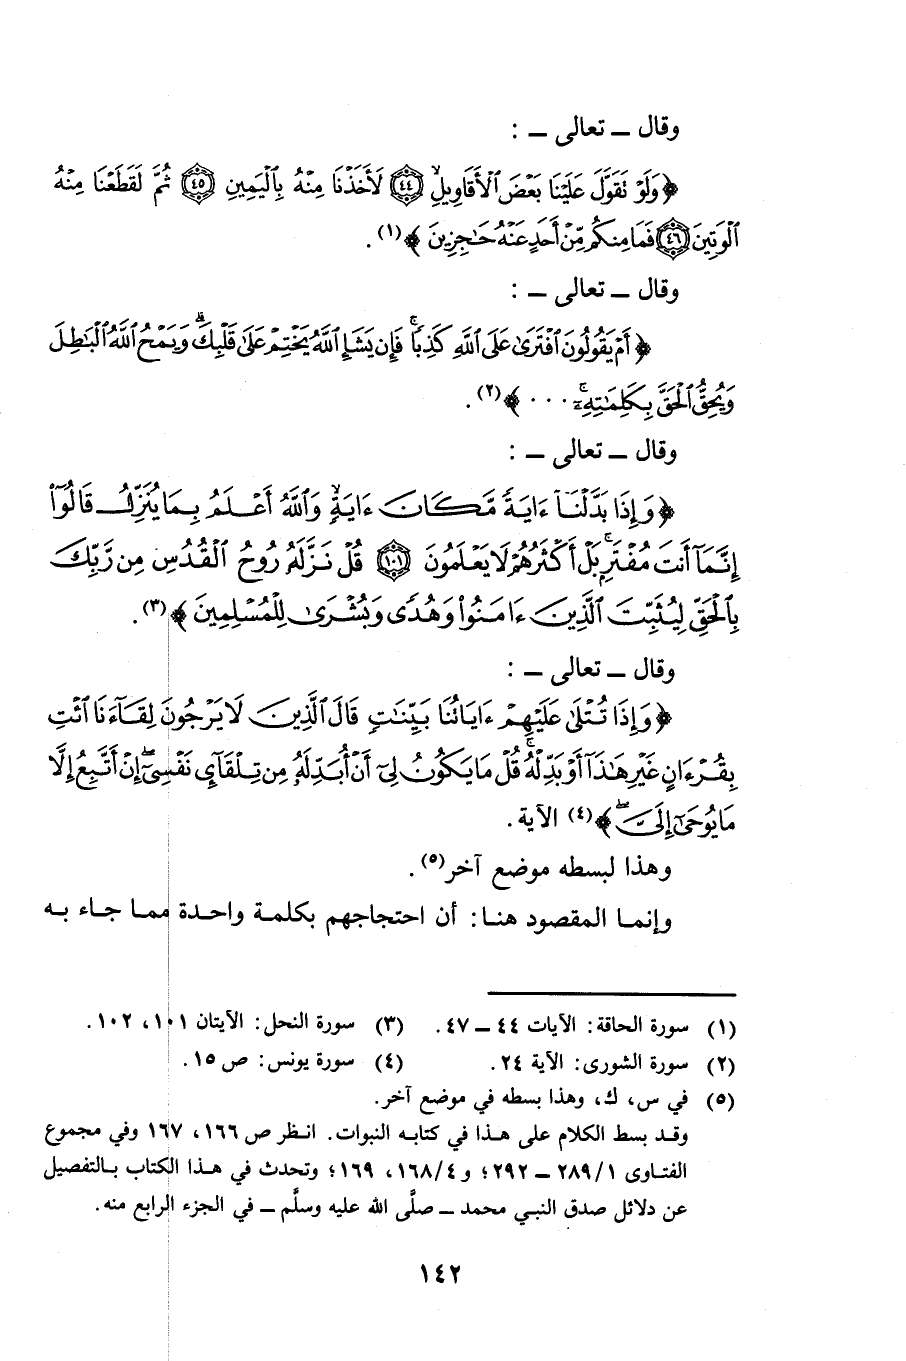 وقال ــ تعالى ــ :
﴿ وَلَوْ تَقَوَّلَ عَلَيْنَا بَعْضَ ٱلْأَقَاوِيلِ ﴿٤٤﴾ لَأَخَذْنَا مِنْهُ بِٱلْيَمِينِ ﴿٤٥﴾ ثُمَّ لَقَطَعْنَا مِنْهُ
ٱلْوَتِينَ ﴿٤٦﴾ فَمَا مِنكُم مِّنْ أَحَدٍ عَنْهُ حَٰجِزِينَ ﴾(١) .
وقال ــ تعالى ــ :
﴿ أَمْ يَقُولُونَ ٱفْتَرَىٰ عَلَى ٱللَّهِ كَذِبًا ۖ فَإِن يَشَإِ ٱللَّهُ يَخْتِمْ عَلَىٰ قَلْبِكَ ۗ وَيَمْحُ ٱللَّهُ ٱلْبَٰطِلَ
وَيُحِقُّ ٱلْحَقَّ بِكَلِمَٰتِهِۦٓ ۚ . . . ﴾(٢) .
وقال ــ تعالى ــ :
﴿ وَإِذَا بَدَّلْنَآ ءَايَةً مَّكَانَ ءَايَةٍ ۙ وَٱللَّهُ أَعْلَمُ بِمَا يُنَزِّلُ قَالُوٓا۟
إِنَّمَآ أَنتَ مُفْتَرٍ ۚ بَلْ أَكْثَرُهُمْ لَا يَعْلَمُونَ ﴿١٠١﴾ قُلْ نَزَّلَهُۥ رُوحُ ٱلْقُدُسِ مِن رَّبِّكَ
بِٱلْحَقِّ لِيُثَبِّتَ ٱلَّذِينَ ءَامَنُوا۟ وَهُدًى وَبُشْرَىٰ لِلْمُسْلِمِينَ ﴾(٣) .
وقال ــ تعالى ــ :
﴿ وَإِذَا تُتْلَىٰ عَلَيْهِمْ ءَايَاتُنَا بَيِّنَٰتٍ قَالَ ٱلَّذِينَ لَا يَرْجُونَ لِقَآءَنَا ٱئْتِ
بِقُرْءَانٍ غَيْرِ هَٰذَآ أَوْ بَدِّلْهُ ۚ قُلْ مَا يَكُونُ لِىٓ أَنْ أُبَدِّلَهُۥ مِن تِلْقَآئِ نَفْسِىٓ ۖ إِنْ أَتَّبِعُ إِلَّا
مَا يُوحَىٰٓ إِلَىَّ ۖ ﴾(٤) الآية .
وهذا لبسطه موضع آخر(٥) .
وإنما المقصود هنا: أن احتجاجهم بكلمة واحدة مما جاء به
(١) سورة الحاقة: الآيات ٤٤ ــ ٤٧. (٣) سورة النحل: الآيتان ١٠١، ١٠٢.
(٢) سورة الشورى: الآية ٢٤. (٤) سورة يونس: ص ١٥.
(٥) في س، ك، وهذا بسطه في موضع آخر.
وقد بسط الكلام على هذا في كتابه النبوات. انظر ص ١٦٦، ١٦٧ وفي مجموع
الفتاوى ٢٨٩/١ ــ ٢٩٢؛ و ١٦٨/٤، ١٦٩؛ وتحدث في هذا الكتاب بالتفصيل
عن دلائل صدق النبي محمد ــ صلَّى الله عليه وسلَّم ــ في الجزء الرابع منه.
١٤٢